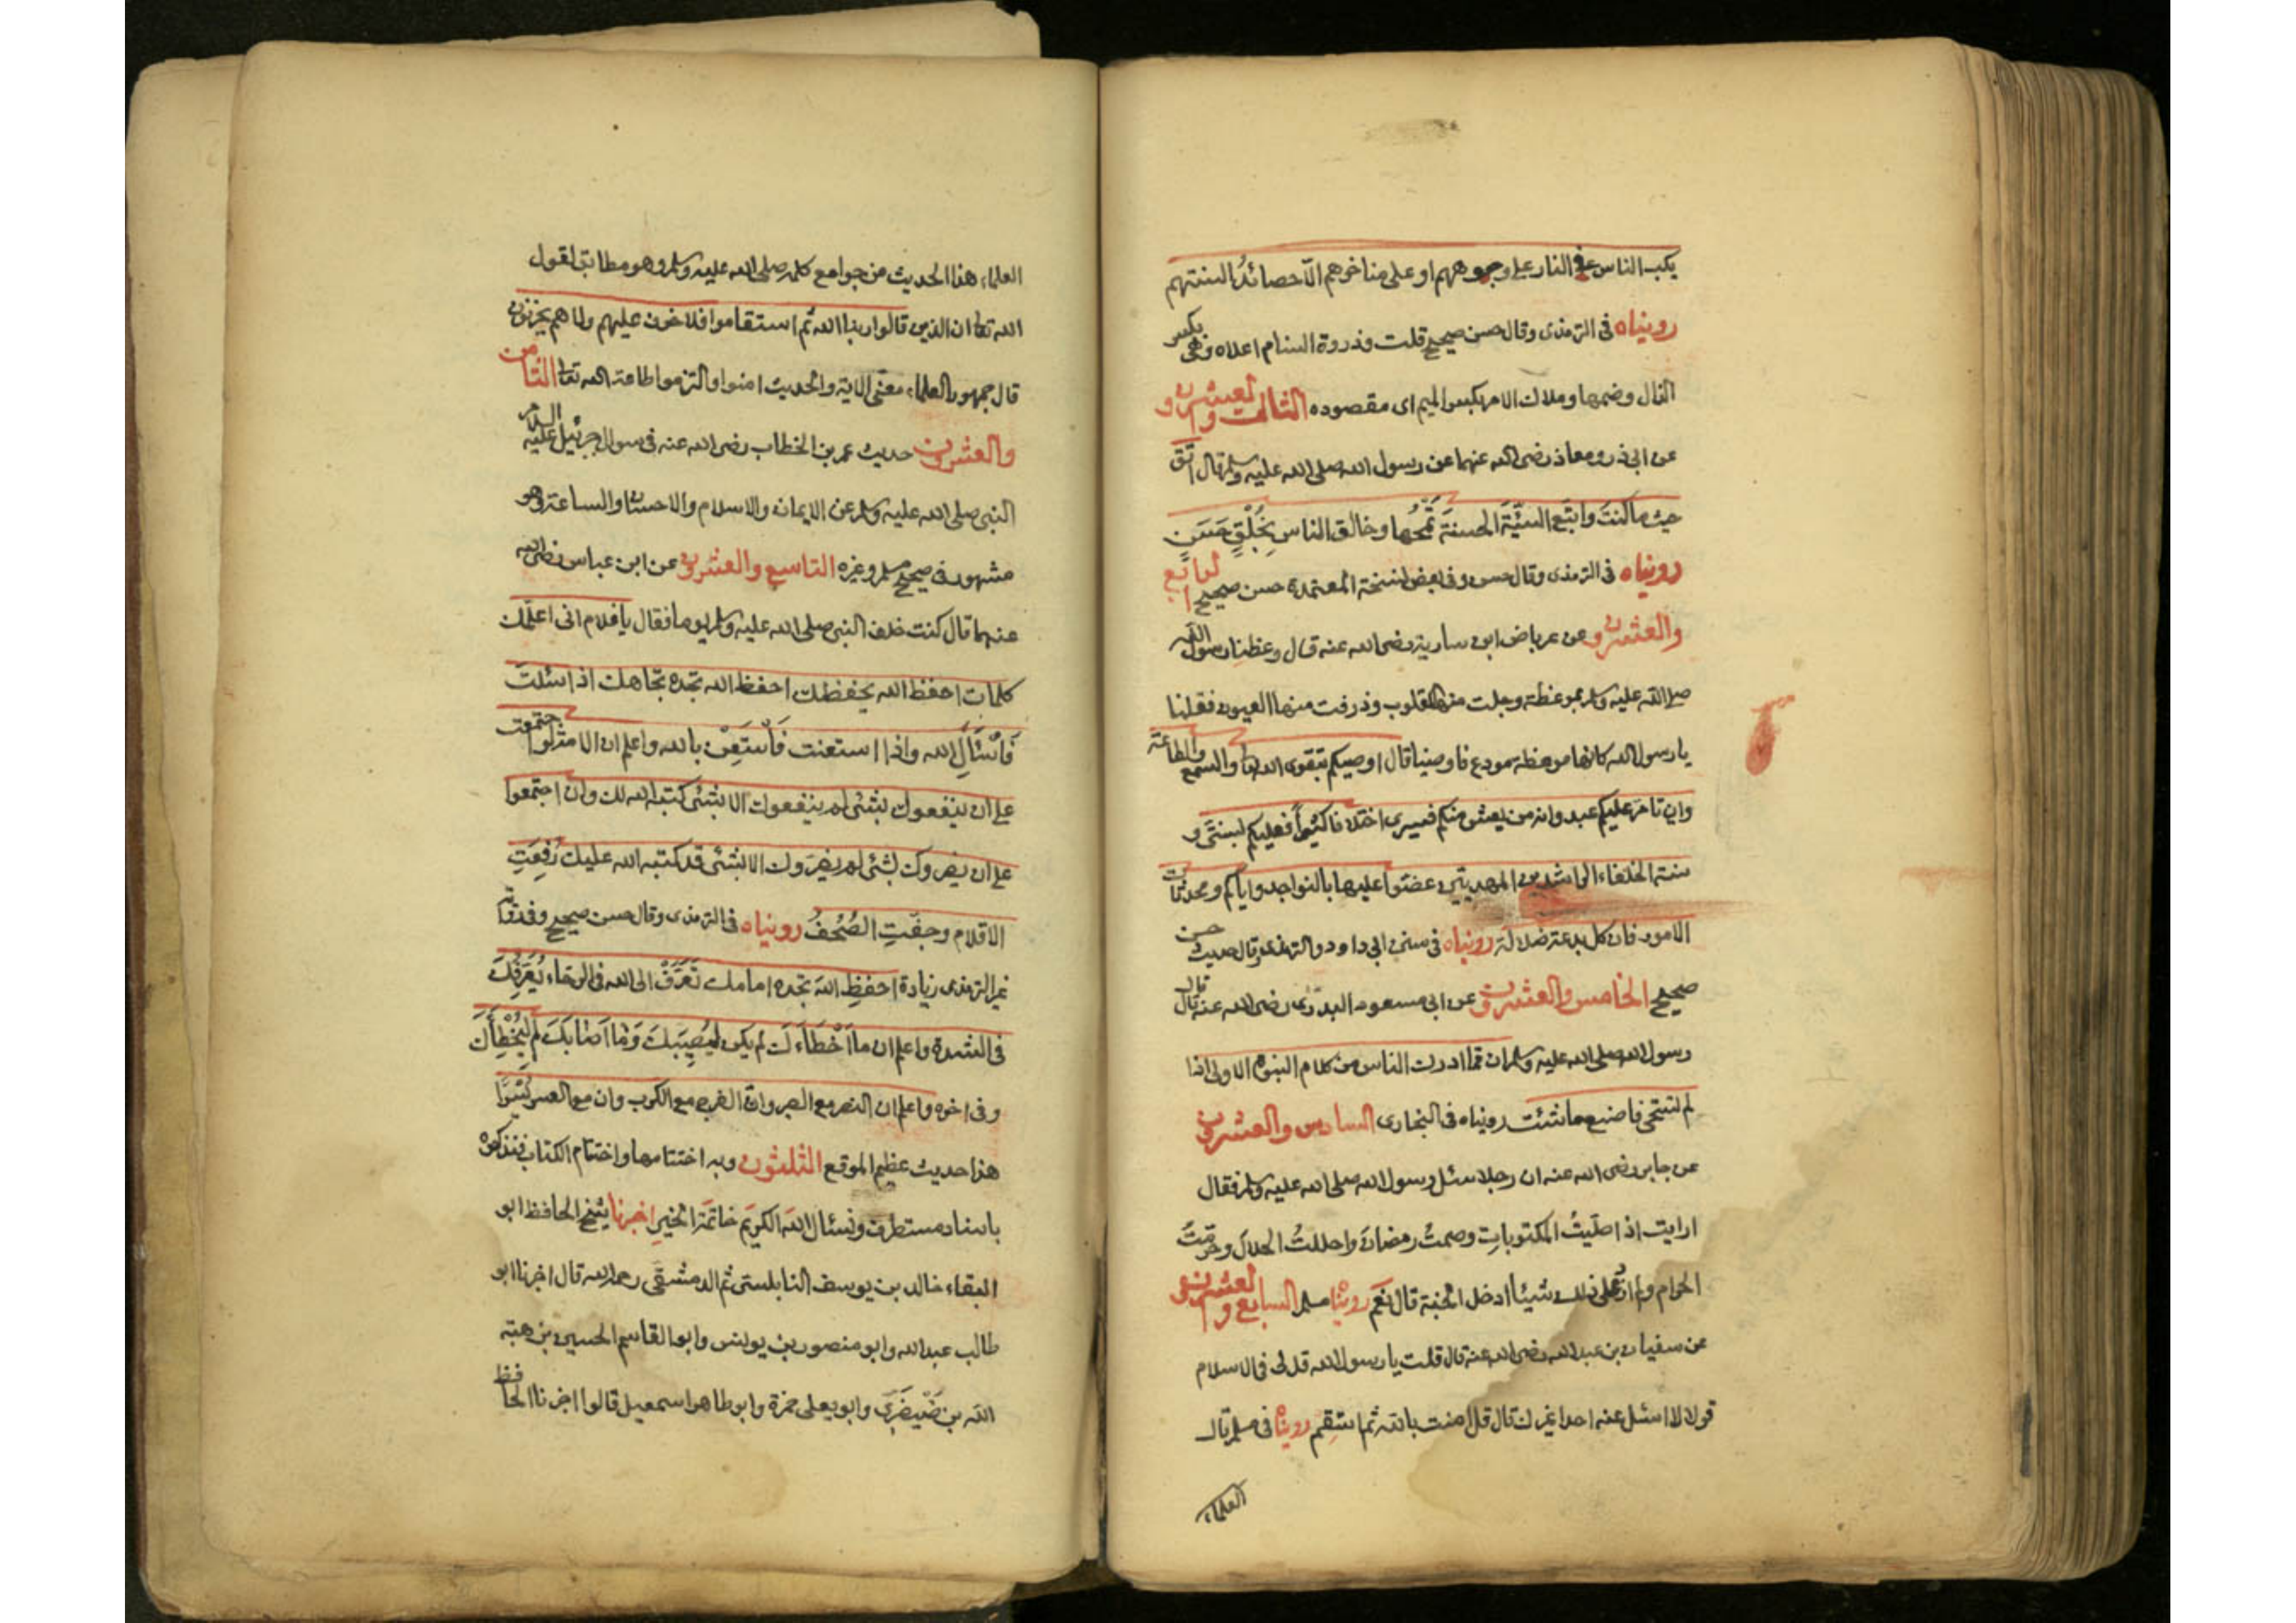 يكب الناس في النار على وجوههم او على مناخرهم الا حصائد السنتهم
روينياه فى الترمذى وقال حسن صحيح قلت وذروة السنام اعلاه وهى بكسر
الذال وضمها وملاك الامر بكسر الميم اى مقصوده الثالث والعشرون
عن ابى ذر ومعاذ رضى الله عنهما عن رسول الله صلى الله عليه وسلم قال اتق
حيث ما كنت واتبع السيّئة الحسنة تمحها وخالق الناس بِخُلْقٍ حَسَنٍ
روينياه فى الترمذى وقال حسن وفى بعض نسخة المعتمدة حسن صحيح الرابع
والعشرون عن عرباض ابن سارية رضى الله عنه قال وعظنا رسول الله
صلى الله عليه وسلم موعظة وجلت منها القلوب وذرفت منها العيون فقلنا
يا رسول الله كانها موعظة مودع فاوصينا قال اوصيكم بتقوى الله والسمع والطاعة
وان تامر عليكم عبد وانه من يعش منكم فسيرى اختلافا كثيراً فعليكم بسنتى و
سنة الخلفاء الراشدين المهديين عضوا عليها بالنواجد واياكم ومحدثات
الامور فان كل بدعة ضلالة روينياه فى سنن ابى داود والترمذى وقال حديث حسن
صحيح الخامس والعشرون عن ابى مسعود البدرى رضى الله عنه قال قال
رسول الله صلى الله عليه وسلم ان مما ادرك الناس من كلام النبوة الاولى اذا
لم تستحى فاصنع ما شئت روينياه فى البخارى السادس والعشرون
عن جابر رضى الله عنه ان رجلا سئل رسول الله صلى الله عليه وسلم فقال
ارايت اذا صلّيتُ المكتوباتِ وصمتُ رمضانَ واحللتُ الحلالَ وحرّمتُ
الحرام ولم ازد على ذلك شيئا ادخل الجنة قال نعم رويناه مسلم السابع والعشرون
عن سفيان بن عبد الله رضى الله عنه قال قلت يا رسول الله قل لى فى الاسلام
قولا لا اسئل عنه احدا غيرك قال قل امنت بالله ثم استقم رويناه فى مسلم قال
العلماء
العلماء هذا الحديث من جوامع كلمه صلى الله عليه وسلم وهو مطابق لقول
الله تعالى ان الذين قالوا ربنا الله ثم استقاموا فلا خوف عليهم ولا هم يحزنون
قال جمهور العلماء معنى الاية والحديث امنوا والتزموا طاعة الله تعالى الثامن
والعشرون حديث عمر بن الخطاب رضى الله عنه فى سوال جبرئيل عليه السلام
النبى صلى الله عليه وسلم عن الايمان والاسلام والاحسان والساعة وهو
مشهور فى صحيح مسلم وغيره التاسع والعشرون عن ابن عباس رضى الله
عنهما قال كنت خلف النبى صلى الله عليه وسلم يوما فقال يا غلام انى اعلّمك
كلمات احفظ الله يحفظك احفظ الله تجده تجاهك اذا سئلت
فَاسْئَالِ الله واذا استعنت فَاسْتَعِنْ بالله واعلم ان الامة لو اجتمعت
على ان ينفعوك بشئى لم ينفعوك الا بشئى كتبه الله لك وان اجتمعوا
على ان يضروك بشئى لم يضروك الا بشئى قد كتبه الله عليك رُفِعَتِ
الاقلام وجفّتِ الصُحُفُ روينياه فى الترمذى وقال حسن صحيح وفى رواية
غير الترمذى زيادة احفظِ اللهَ تجده امامك تَعَرَّفْ الى الله فى الرخاء يُعَرِّفْكَ
فى الشدة واعلم ان ما اَخْطَاءَكَ لم يكن لِيُصِيبَكَ وَمَا اَصَابَكَ لم لِيُخْطِأَكَ
وفى اخره واعلم ان النصر مع الصبر وان الفرج مع الكرب وان مع العسر يُسْرًا
هذا حديث عظيم الموقع الثلثون وبه اختتامها واختتام الكتاب فنذكره
باسناد مستطرف ونسئال الله الكريم خاتمة الخير اخبرنا شيخ الحافظ ابو
البقاء خالد بن يوسف النابلستى ثم الدمشقى رحمه الله قال اخبرنا ابو
طالب عبد الله وابو منصور بن يونس وابو القاسم الحسين بن هبة
الله بن صَيْصَرَى وابو يعلى حمزة وابو طاهر اسمعيل قالوا اخبرنا الحافظ